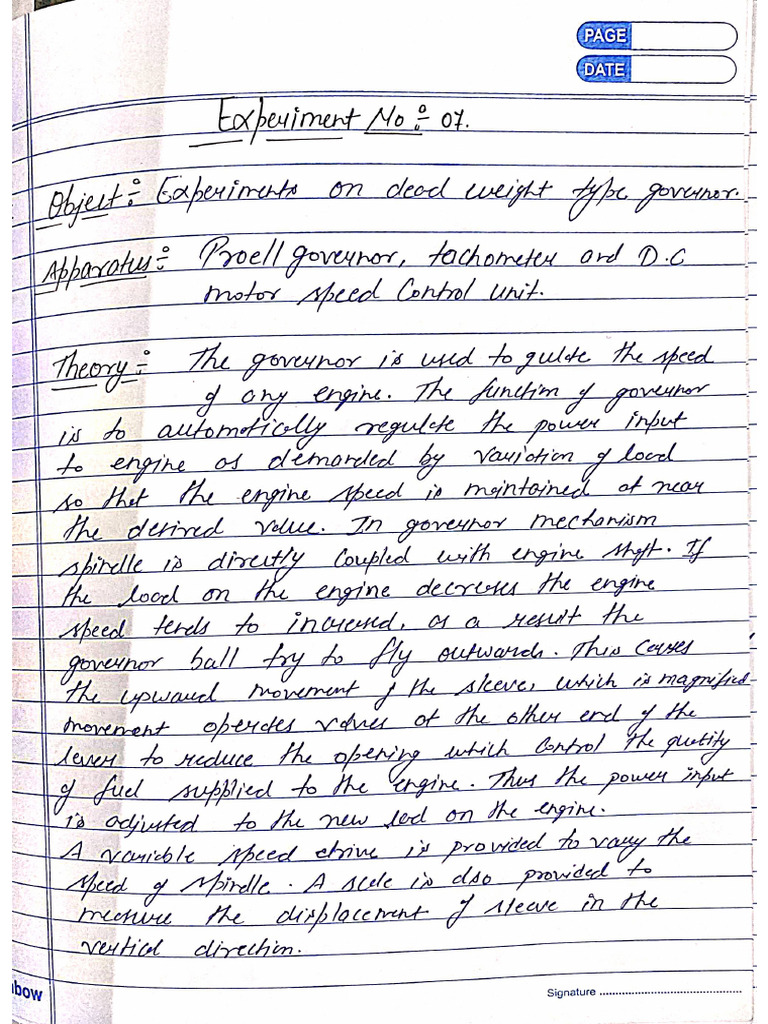 PAGE
DATE
Experiment No ÷ 07.
Object ÷ Experiments on dead weight type governor.
Apparatus ÷ Proell governor, tachometer and D.C
motor speed Control unit.
Theory ÷ The governor is used to gulate the speed
of any engine. The function of governor
is to automatically regulate the power input
to engine as demanded by variation of load
so that the engine speed is maintained at near
the desired value. In governor mechanism
spindle is directly coupled with engine shaft. If
the load on the engine decreses the engine
speed tends to increased, as a result the
governor ball try to fly outwards. This causes
the upward movement of the sleeve, which is magnified
movement operates valves at the other end of the
lever to reduce the opening which control the quntity
of fuel supplied to the engine. Thus the power input
is adjusted to the new lod on the engine.
A variable speed drive is provided to vary the
speed of spindle. A scale is also provided to
mecsure the displacement of sleeve in the
vertical direction.
bow
Signature